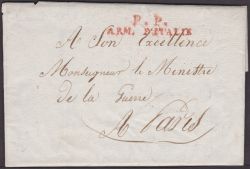 P. P.
ARM. D'ITALIE
A Son Excellence
Monseigneur le Ministre
de la Guerre
A Paris